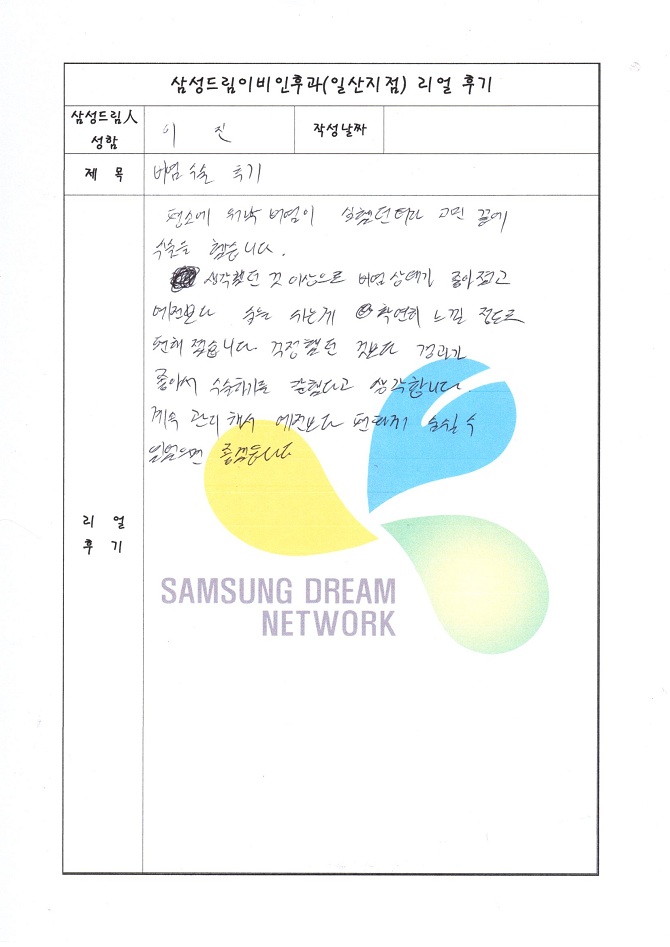 삼성드림이비인후과(일산지점) 리얼 후기
삼성드림人
성함
이 진
작성날짜
제 목
비염 수술 후기
평소에 워낙 비염이 심했던터라 고민 끝에
수술을 했습니다.
생각했던 것 이상으로 비염상태가 좋아졌고
예전보다 숨을 쉬는게 확연히 느낄 정도로
편해 졌습니다 걱정했던 것보다 경과가
좋아서 수술하기를 잘했다고 생각합니다.
계속 관리해서 예전보다 편하게 숨쉴 수
있었으면 좋겠습니다
리 얼
후 기
SAMSUNG DREAM
NETWORK